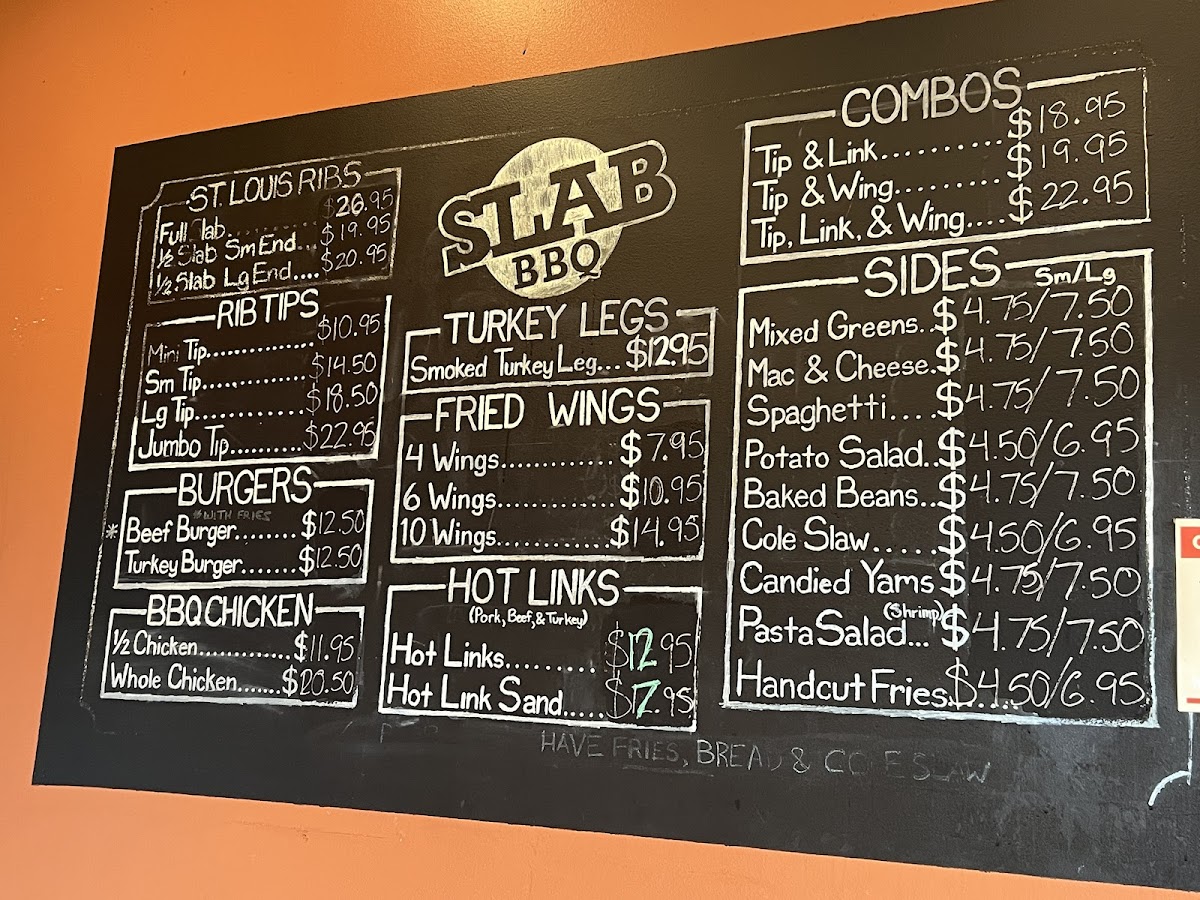 ST. LOUIS RIBS
Full Slab.......... $26.95
1/2 Slab Sm End... $19.95
1/2 Slab Lg End.... $20.95
RIB TIPS
Mini Tip............... $10.95
Sm Tip.............. $14.50
Lg Tip.............. $18.50
Jumbo Tip.......... $22.95
BURGERS
*WITH FRIES
* Beef Burger........ $12.50
Turkey Burger....... $12.50
BBQ CHICKEN
1/2 Chicken............. $11.95
Whole Chicken....... $20.50
SLAB
BBQ
TURKEY LEGS
Smoked Turkey Leg... $12.95
FRIED WINGS
4 Wings.............. $7.95
6 Wings.............. $10.95
10 Wings............. $14.95
HOT LINKS
(Pork, Beef, & Turkey)
Hot Links.......... $12.95
Hot Link Sand..... $12.95
COMBOS
Tip & Link........... $18.95
Tip & Wing.......... $19.95
Tip, Link, & Wing.... $22.95
SIDES Sm/Lg
Mixed Greens.. $4.75/7.50
Mac & Cheese. $4.75/7.50
Spaghetti.... $4.75/7.50
Potato Salad.. $4.50/6.95
Baked Beans... $4.75/7.50
Cole Slaw..... $4.50/6.95
Candied Yams $4.75/7.50
(Shrimp)
Pasta Salad... $4.75/7.50
Handcut Fries...... $4.50/6.95
HAVE FRIES, BREAD & COLE SLAW